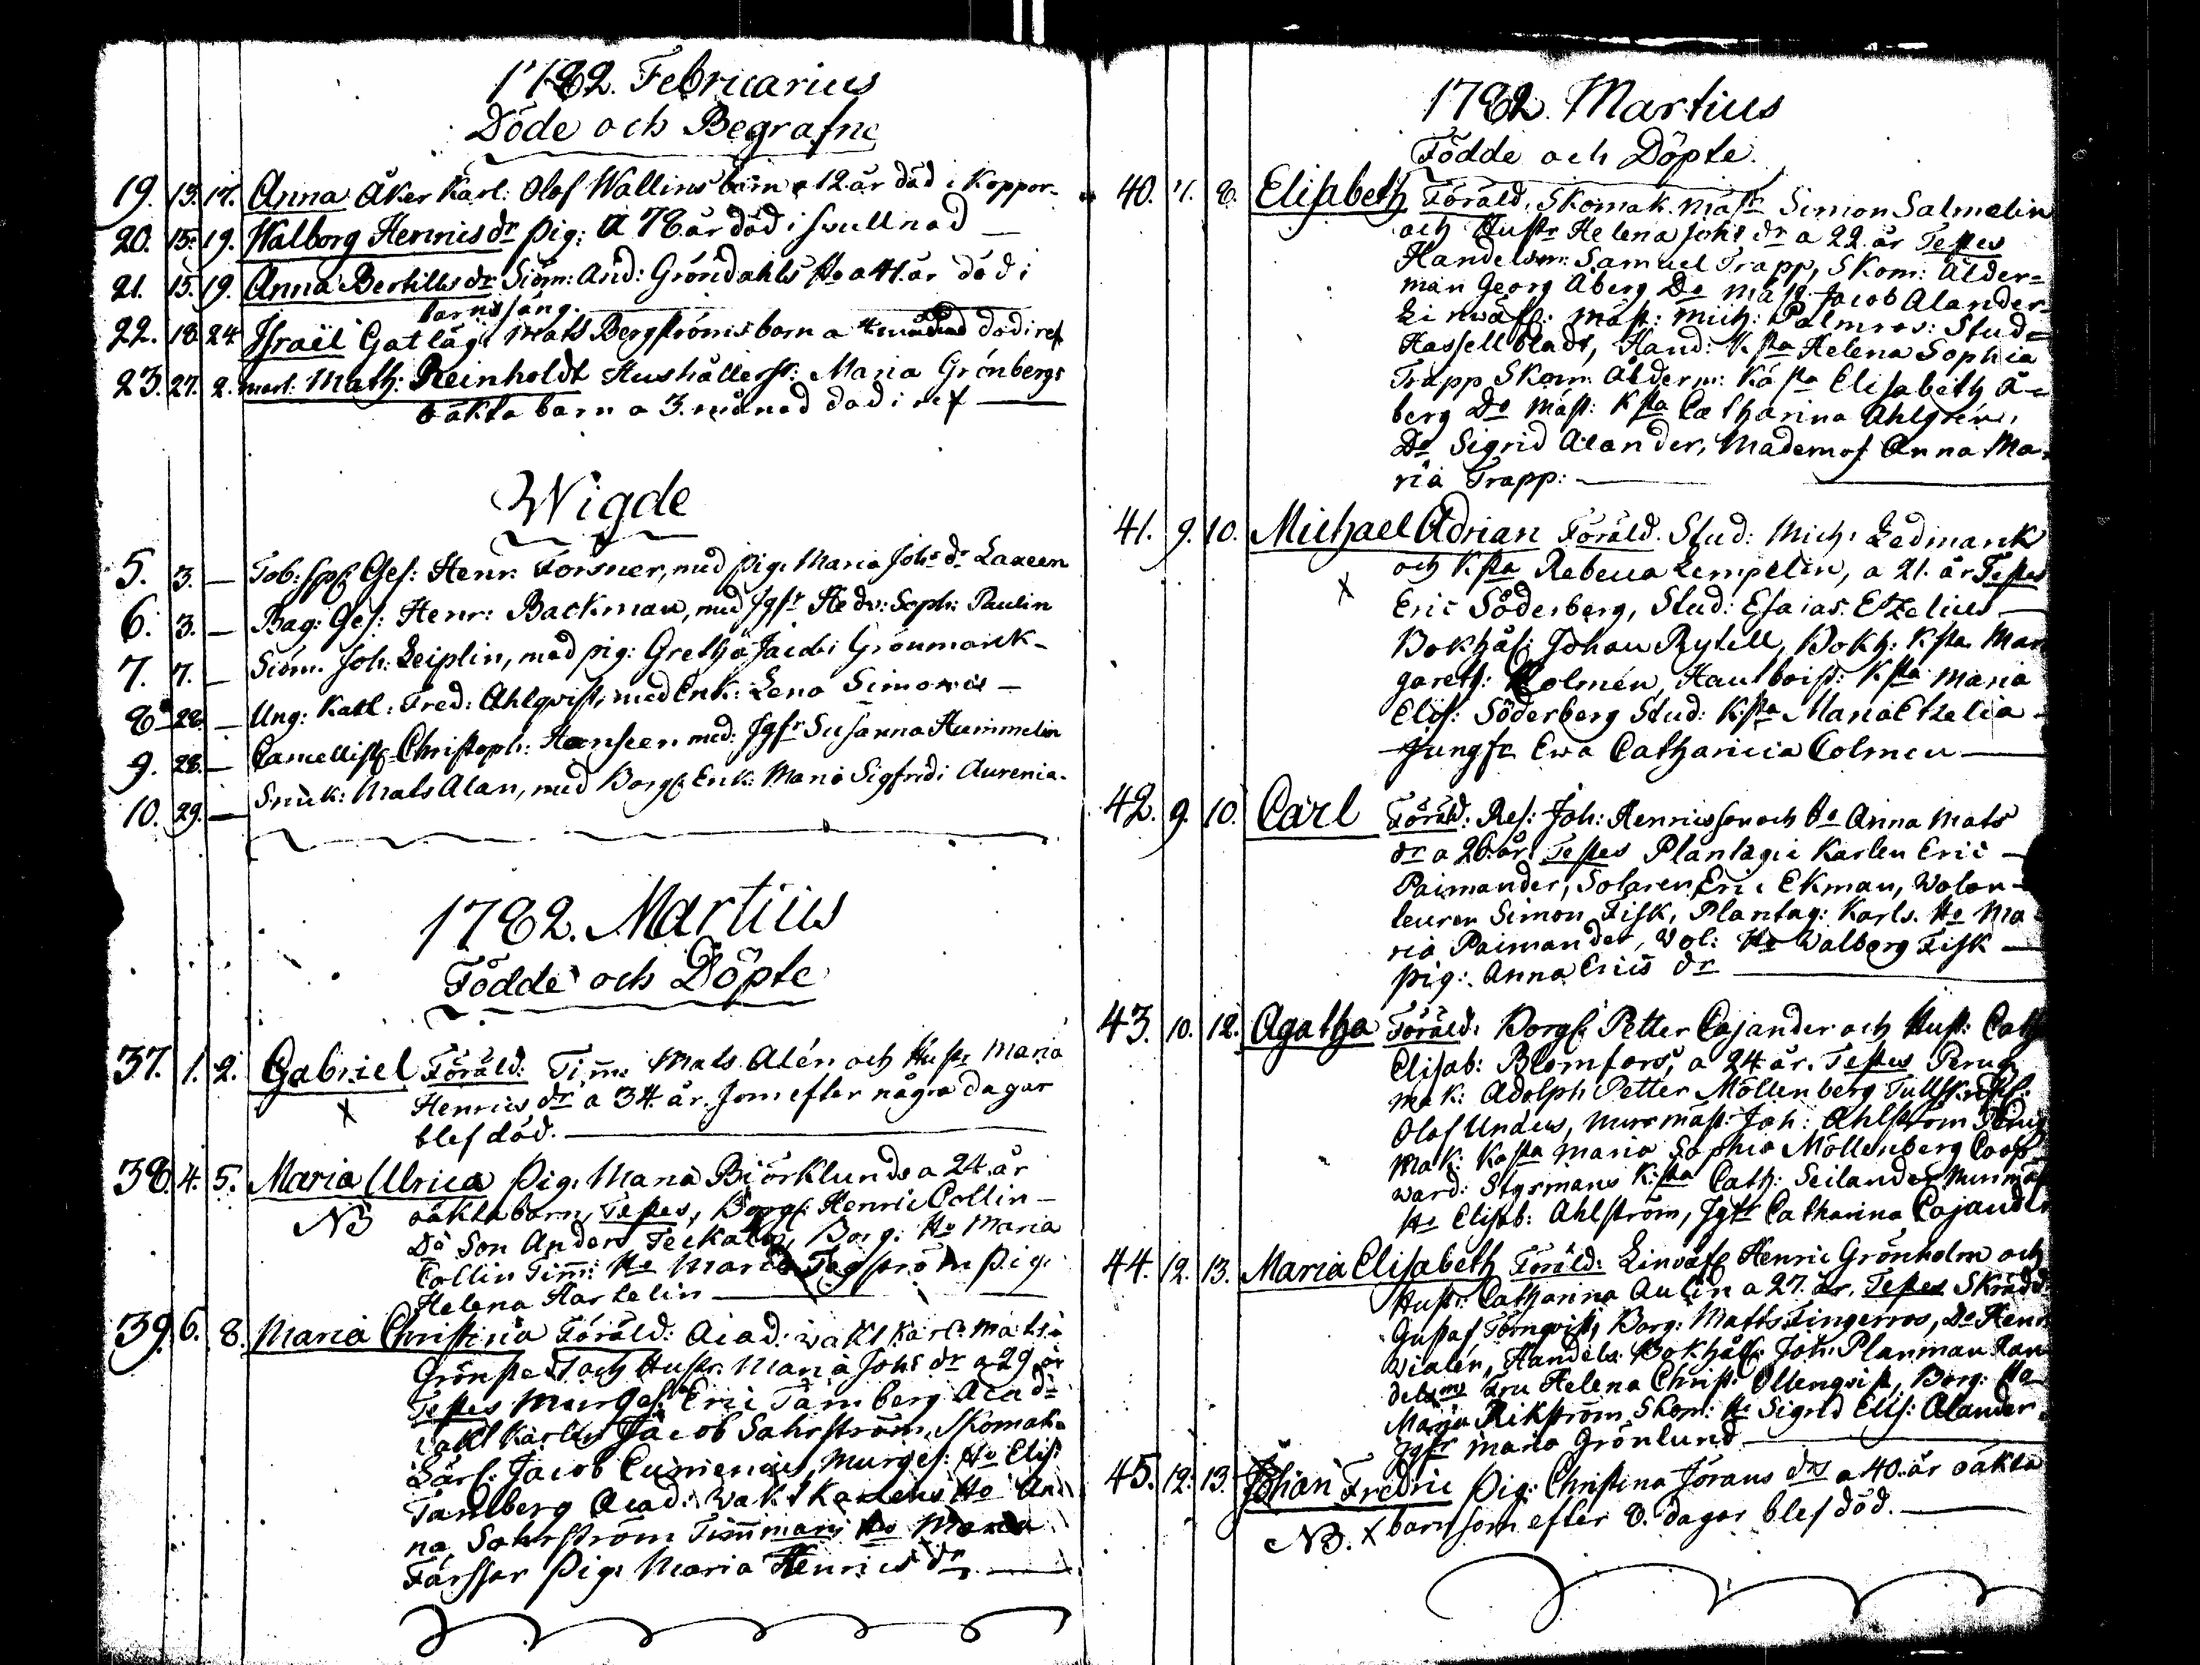 1782. Februarius
Döde och Begrafne
19. 13. 17. Anna Åker Karl: Olof Wallins barn a 12 år död i Koppor-
20. 15. 19. Walborg Henrics dr Pig: a 78 år död i svullnad —
21. 15. 19. Anna Bertills dr Siöm: And: Gröndahls Ho a 41. år död i
barnsäng.
22. 18. 24. Israël Gatläg: Mats Bergströms barn a 4 månad död i ref
23. 27. 2. Math: Reinholdt Hushållersk: Maria Grönbergs
oäkta barn a 3. månad död i ref —
Wigde
5. 3. — Tob: Ges: Henr: Forsner, med pig: Maria Johs dr Laxeen
6. 3. — Bag: Ges: Henr: Backman, med Jgfr Hedv: Soph: Paulin
7. 7. — Siöm. Joh: Leiplin, med pig: Gretha Jacobi Grönmarck —
8. 28. — Ung: Karl: Fred: Ahlqvist, med Enk: Lena Simonis —
9. 28. — Cancellist Christoph: Hansen med: Jgfr Susanna Hummelin
10. 29. — Snick: Mats Alan, med Borg: Enk: Maria Sigfridi Aurenia.
1782. Martius
Födde och Döpte
37. 1. 2. Gabriel Föräld: Tim: Mats Alén och Hustr Maria
x Henrics dr a 34. år. som efter några dagar
blef död. —
38. 4. 5. Maria Ulrica Pig: Maria Biörklunds a 24. år
NB oäkta barn, Testes, Borg: Henric Collin —
Do Son Anders Teckala, Borg: Ho Maria
Collin Tim: Ho Maria Tegström Pig:
Helena Hartelin —
39. 6. 8. Maria Christina Föräld: Acad: wakt karl: Mats
Grönstedt och Hustr. Maria Johs dr a 29. år
Testes Murges: Eric Tamberg Acad:
wakt karlen Jacob Sahrström, Skomak:
Lärl: Jacob Cumenius, Murges: Ho Elis:
Tamberg Acad: Wakt Karlens Ho An
na Sahrström Timmans Ho Maria
Färssar Pig: Maria Henrics dr —
1782. Martius
Födde och Döpte.
40. 7. 8. Elisabeth Föräld: Skomak. mäst: Simon Salmelin
och Hustr Helena Johs dr a 22. år Testes
Handelsm: Samuel Trapp, Skom: Ålder=
man Georg Åberg Do mäst: Jacob Alander
Linwäf: mäst: Mich: Palmros: Stud=
Hassellbladt, Hand: K sta Helena Sophia
Trapp Skom. Ålderm: Kä sta Elisabeth Å=
berg Do mäst: K sta Catharina Ahlgrén,
Do Sigrid Alander, Mademos Anna Ma=
ria Trapp: —
41. 9. 10. Michael Adrian Föräld. Stud: Mich: Ledmarck
x och K. sta Rebecca Lempelin, a 21. år Testes
Eric Söderberg, Stud: Esaias Etzelius —
Bokhål: Johan Rytell, Bokh: K sta Mar
gareth: Kolmén, Hautboist: K sta Maria
Elis: Söderberg Stud: K sta Maria Etzelia —
Jungfr Ewa Catharina Colmen —
42. 9. 10. Carl Föräld: Res: Joh: Henricsson och Ho Anna Mats
dr a 26. år. Testes Plantagie Karlen Eric —
Paimander, Solaren Eric Ekman, Wolon=
teuren Simon Fisk, Plantag: Karls. Ho Ma
ria Paimander, Vol: Ho Walborg Fisk —
pig: Anna Erics dr —
43. 10. 12. Agatha Föräld: Borg: Petter Cajander och Hust: Cath
Elisab: Blomfors, a 24 år. Testes Peruq
mak: Adolph Petter Möllenberg Tullsk:
Olof Undus, Murmäst: Joh: Ahlström Peruq
mak: Kä sta Maria Sophia Möllenberg Coop
ward: Styrmans K: sta Cath: Seilander Murmäst
Ho Elisab: Ahlström, Jgfr Catharina Cajander
44. 12. 13. Maria Elisabeth Föräld: Linwäf: Henric Grönholm och
Hustr: Catharina Aulin a 27. år. Testes Skrädd:
Gustaf Törnqvist, Borg: Matts Fingerros, Do Henr
Wialén, Handels: Bokhål: Joh: Planman Han
delsms Fru Helena Christ: Ollenqvist, Borg: Ho
Maria Rikström Skom: Ho Sigrid Elis: Alander
Jgfr Maria Grönlund —
45. 12. 13. Johan Fredric Pig: Christina Jörans drs a 40. år oäkta
NB. x barn som efter 8. dagar blef död. —